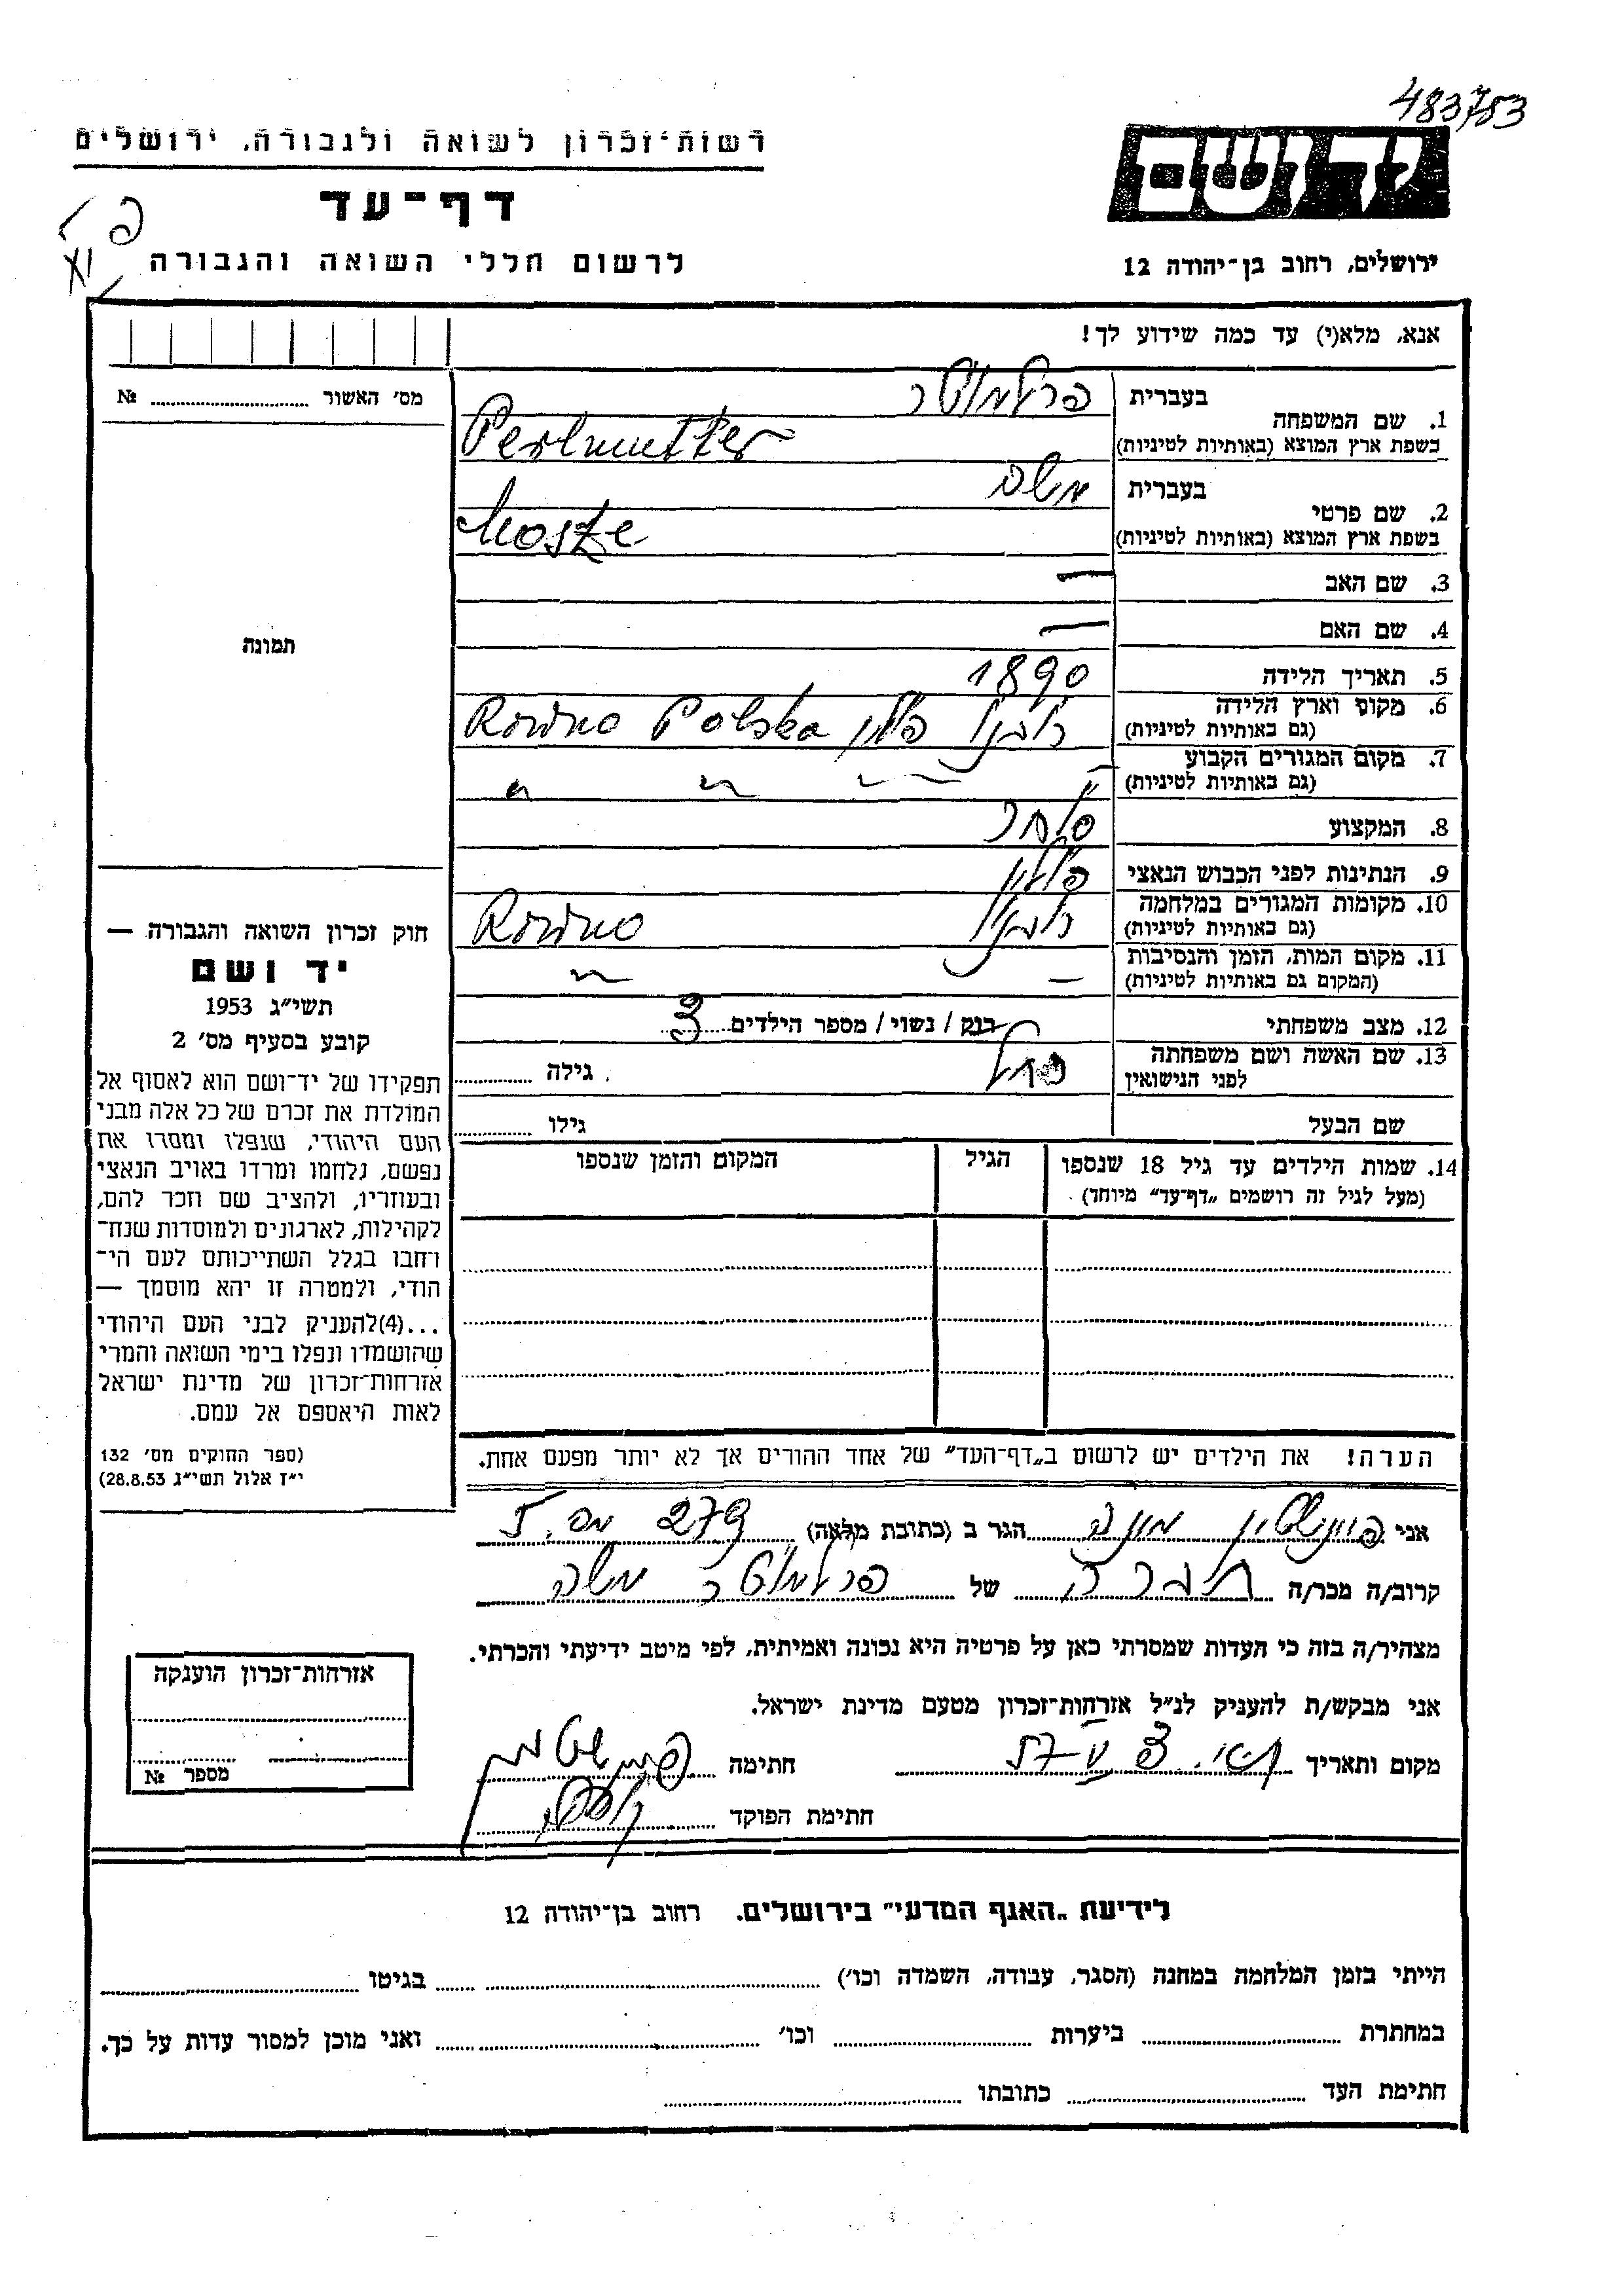 483753
רשות־זכרון לשואה ולגבורה, ירושלים
יד ושם
דף־עד
לרשום חללי השואה והגבורה
ירושלים, רחוב בן־יהודה 12
אנא, מלא(י) עד כמה שידוע לך!
מס׳ האשור № ....................
בעברית פרלמוטר
1. שם המשפחה
בשפת ארץ המוצא (באותיות לטיניות) Perlmutter
בעברית משה
2. שם פרטי
בשפת ארץ המוצא (באותיות לטיניות) Mosze
3. שם האב —
4. שם האם —
תמונה
5. תאריך הלידה 1890
6. מקום וארץ הלידה
(גם באותיות לטיניות) רובנו פולין Rowno Polska
7. מקום המגורים הקבוע
(גם באותיות לטיניות) " " "
8. המקצוע סוחר
9. הנתינות לפני הכבוש הנאצי פולין
10. מקומות המגורים במלחמה
(גם באותיות לטיניות) רובנו Rowno
11. מקום המות, הזמן והנסיבות
(המקום גם באותיות לטיניות) — "
12. מצב משפחתי רווק / נשוי / מספר הילדים 3
13. שם האשה ושם משפחתה
לפני הנישואין גילה
שם הבעל גילו
14. שמות הילדים עד גיל 18 שנספו
(מעל לגיל זה רושמים „דף־עד” מיוחד)
הגיל
המקום והזמן שנספו
חוק זכרון השואה והגבורה —
יד ושם
תשי״ג 1953
קובע בסעיף מס׳ 2
תפקידו של יד־ושם הוא לאסוף אל
המולדת את זכרם של כל אלה מבני
העם היהודי, שנפלו ומסרו את
נפשם, נלחמו ומרדו באויב הנאצי
ובעוזריו, ולהציב שם וזכר להם,
לקהילות, לארגונים ולמוסדות שנח־
רחבו בגלל השתייכותם לעם הי־
הודי, ולמטרה זו יהא מוסמך —
...(4)להעניק לבני העם היהודי
שהושמדו ונפלו בימי השואה והמרי
אזרחות־זכרון של מדינת ישראל
לאות היאספם אל עמם.
(ספר החוקים מס׳ 132
י״ז אלול תשי״ג 28.8.53)
הערה! את הילדים יש לרשום ב„דף־העד” של אחד ההורים אך לא יותר מפעם אחת.
אני הגר ב (כתובת מלאה)
קרוב/ה מכר/ה של פרלמוטר משה
מצהיר/ה בזה כי העדות שמסרתי כאן על פרטיה היא נכונה ואמיתית, לפי מיטב ידיעתי והכרתי.
אני מבקש/ת להעניק לנ״ל אזרחות־זכרון מטעם מדינת ישראל.
מקום ותאריך חתימה
חתימת הפוקד
אזרחות־זכרון הוענקה
מספר №
לידיעת „האגף המדעי” בירושלים. רחוב בן־יהודה 12
הייתי בזמן המלחמה במחנה (הסגר, עבודה, השמדה וכו׳) בגיטו
במחתרת ביערות וכו׳ ואני מוכן למסור עדות על כך.
חתימת העד כתובתו